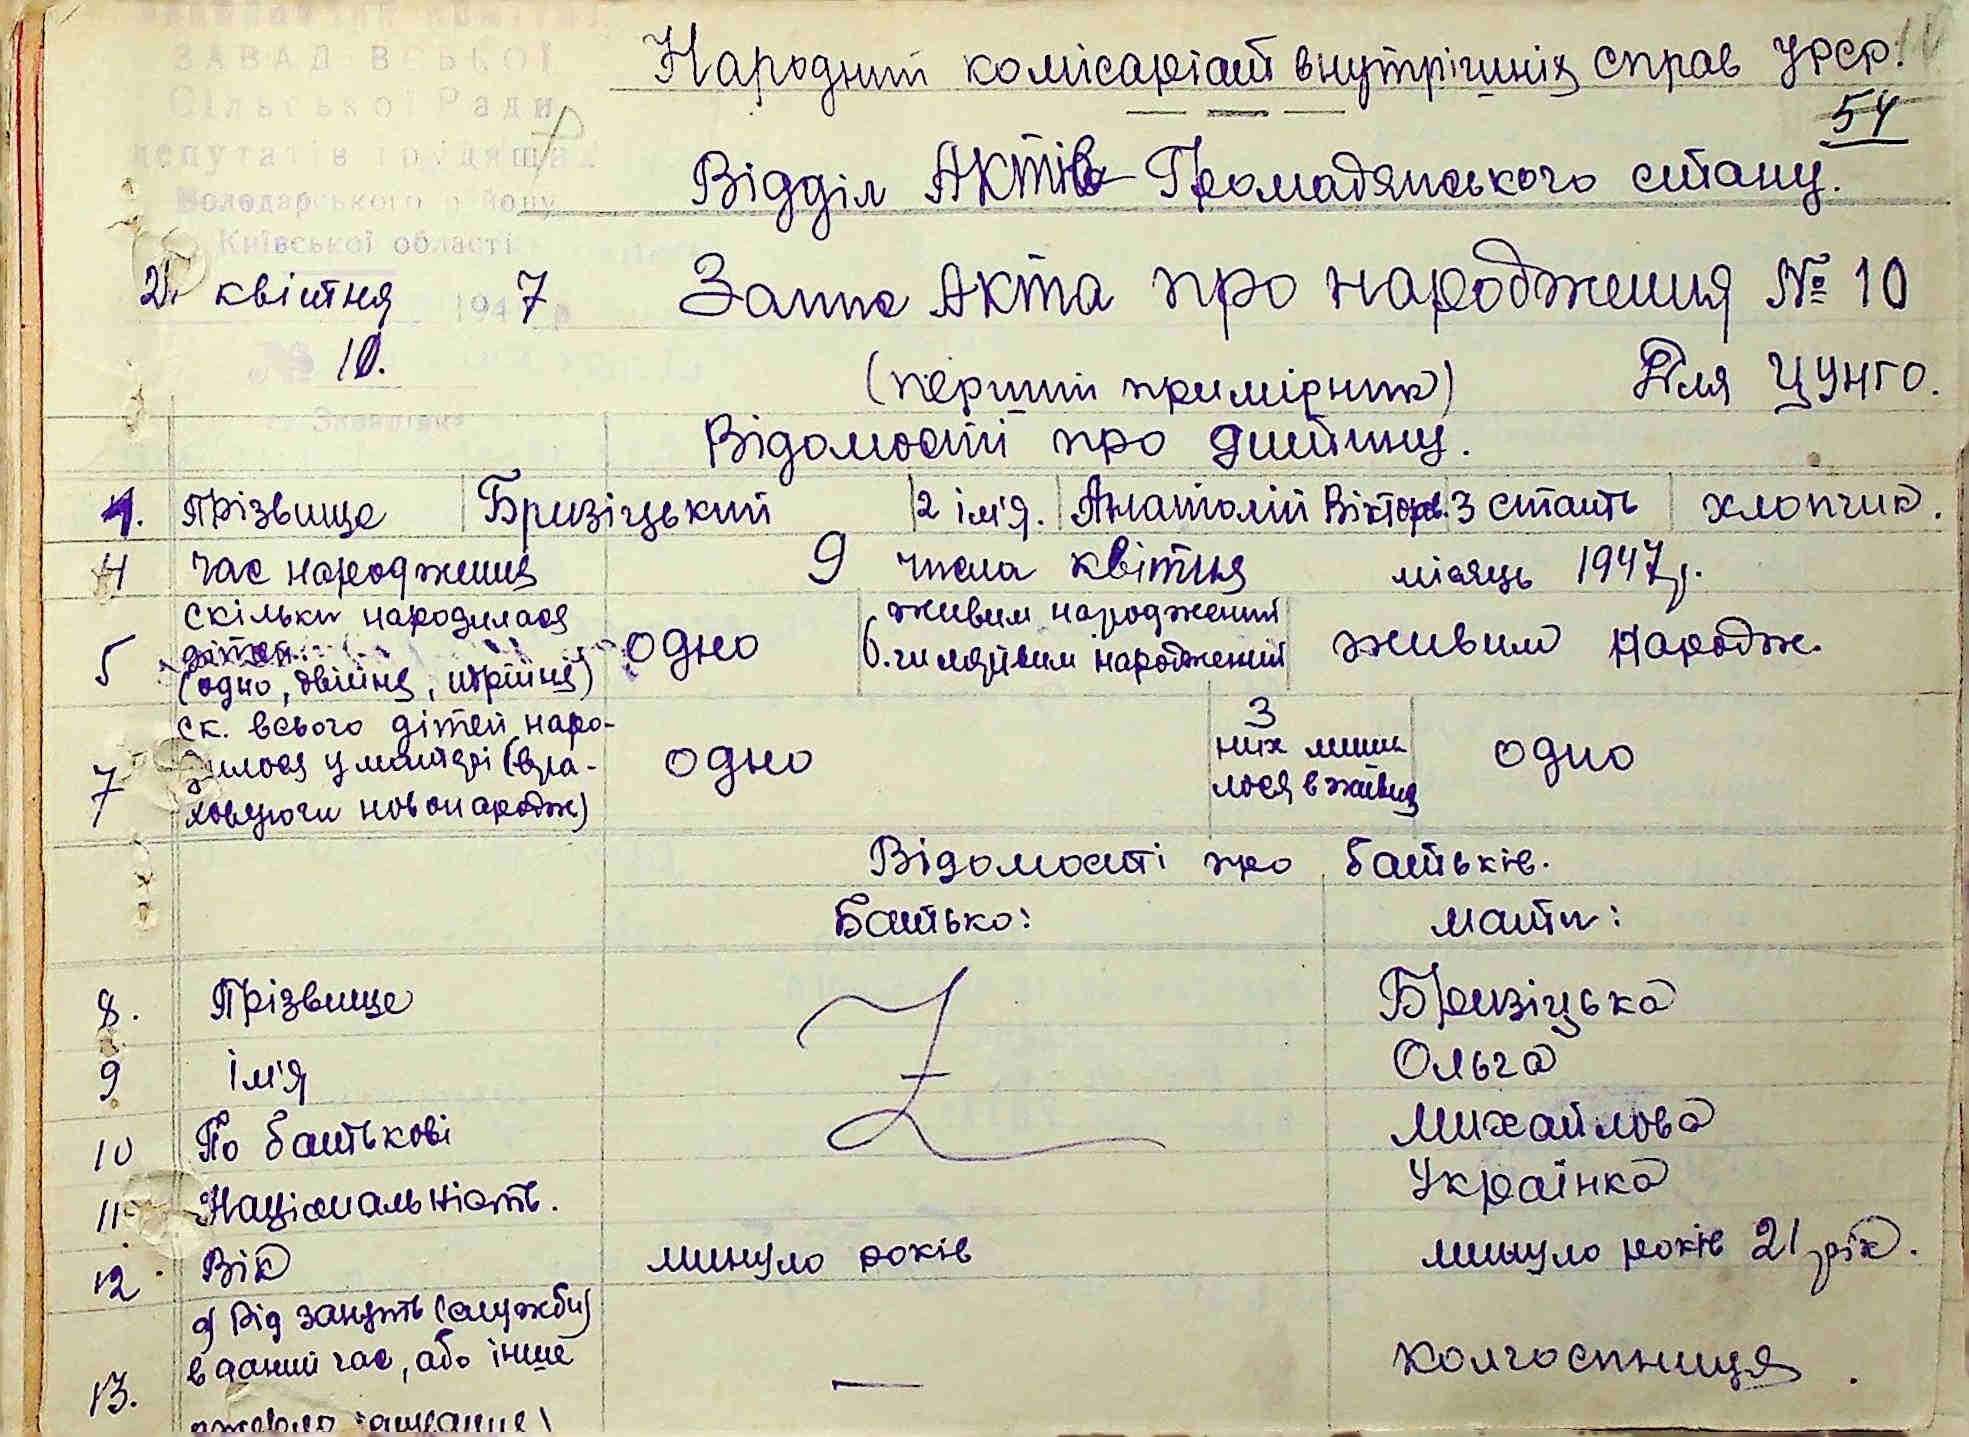 ЗАВАД ВСЬКОЇ
Сільської Ради
депутатів трудящих
Володарського району
Київської області
Народний комісаріат внутрішніх справ УРСР.
54
Відділ Актів Громадянського стану.
21 квітня 1947 р
Запис Акта про народження № 10
№ 10.
(перший примірник) Для ЦУНГО.
Відомості про дитину.
1. Прізвище Бризіцький 2 ім'я. Анатолій Вікторов. 3 стать хлопчик.
4 час народження 9 числа квітня місяць 1947 р.
5 скільки народилося дітей (одно, двійня, трійня) одно 6. живим народжений чи мертвим народжений живим народж.
7 ск. всього дітей наро-
дилося у матері (вра-
ховуючи новонародж) одно З них лиши лося в живих одно
Відомості про батьків.
Батько: мати:
8. Прізвище Бризіцька
9 ім'я Ольга
10 По батькові Михайлова
11 Національність. Українка
12. Вік минуло років минуло років 21 рік.
13. а) Рід занять (служби)
в даний час, або інше
— колгоспниця.